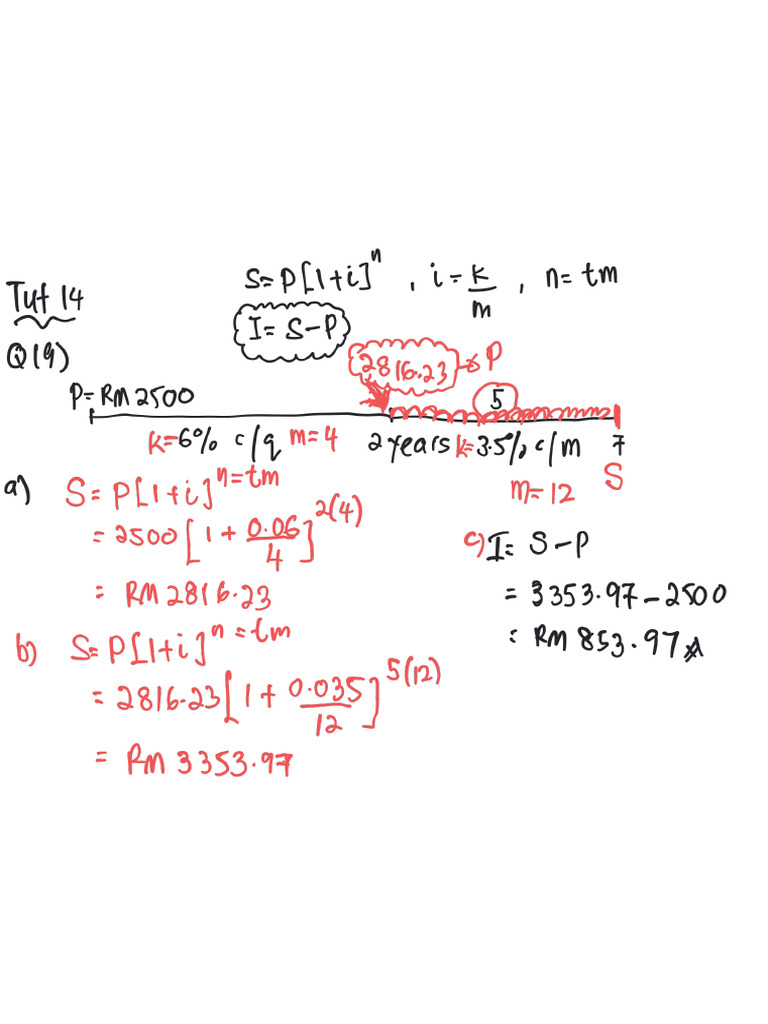 Tut 14
S=P[1+i]^n , i=k/m , n=tm
I= S-P
Q19)
2816.23 → P
P=RM2500
5
k=6% c/q m=4 2years k=3.5% c/m 7
m=12 S
a) S=P[1+i]^n=tm
=2500[1+0.06/4]^2(4)
= RM2816.23
b) S=P[1+i]^n=tm
=2816.23[1+0.035/12]^5(12)
= RM 3353.97
c) I= S-P
= 3353.97-2500
= RM 853.97